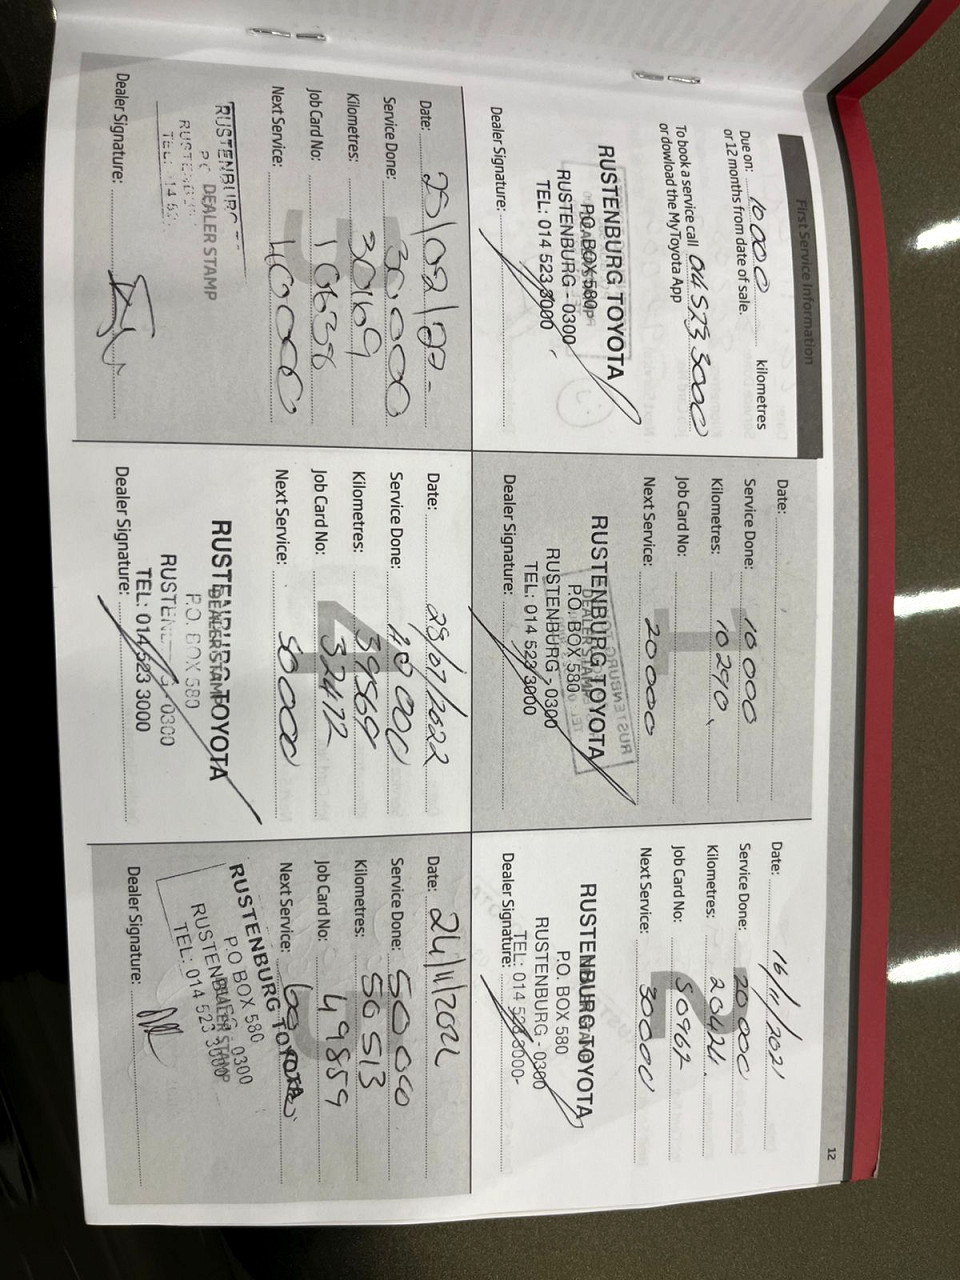 First Service Information
Due on: 10000 kilometres
or 12 months from date of sale.
To book a service call 014 523 3000
or dowload the MyToyota App
RUSTENBURG TOYOTA
P.O. BOX 580
RUSTENBURG - 0300
TEL: 014 523 3000
Dealer Signature:
1
Date:
Service Done: 10 000
Kilometres: 10290
Job Card No:
Next Service: 20000
RUSTENBURG TOYOTA
DEALER STAMP
P.O. BOX 580
RUSTENBURG - 0300
TEL: 014 523 3000
Dealer Signature:
2
Date: 16/11/2021
Service Done: 20 000
Kilometres: 20424.
Job Card No: 50962
Next Service: 30000
RUSTENBURG TOYOTA
P.O. BOX 580
RUSTENBURG - 0300
TEL: 014 523 3000
Dealer Signature:
12
Date:
Service Done: 30.000
Kilometres: 30169
Job Card No: 10638
Next Service: 40000
RUSTENBURG
DEALER STAMP
Dealer Signature:
4
Date: 29/07/2022
Service Done: 40 000
Kilometres: 39569
Job Card No: 32472
Next Service: 50000
RUSTENBURG TOYOTA
DEALER STAMP
P.O. BOX 580
RUSTENBURG 0300
TEL: 014 523 3000
Dealer Signature:
5
Date: 24/11/2022
Service Done: 50 000
Kilometres: 50 513
Job Card No: 49859
Next Service: 60 000
RUSTENBURG TOYOTA
P.O BOX 580
RUSTENBURG 0300
DEALER STAMP
TEL: 014 523 3000
Dealer Signature: